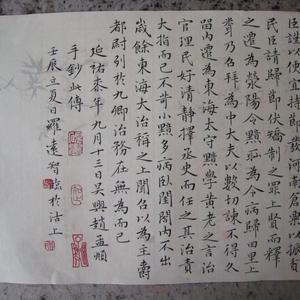 臣謹以便宜持節發河南倉粟以振貧
民臣請歸節伏矯制之罪上賢而釋
之遷為滎陽令黯恥為令病歸田里上
聞乃召拜為中大夫以數切諫不得久
留內遷為東海太守黯學黃老之言治
官理民好清靜擇丞史而任之其治責
大指而已不苛小黯多病臥閨閤內不出
歲餘東海大治稱之上聞召以為主爵
都尉列於九卿治務在無為而已
延祐柒年九月十三日吳興趙孟頫
手鈔此傳
壬辰立夏日羅遠智臨於沽上